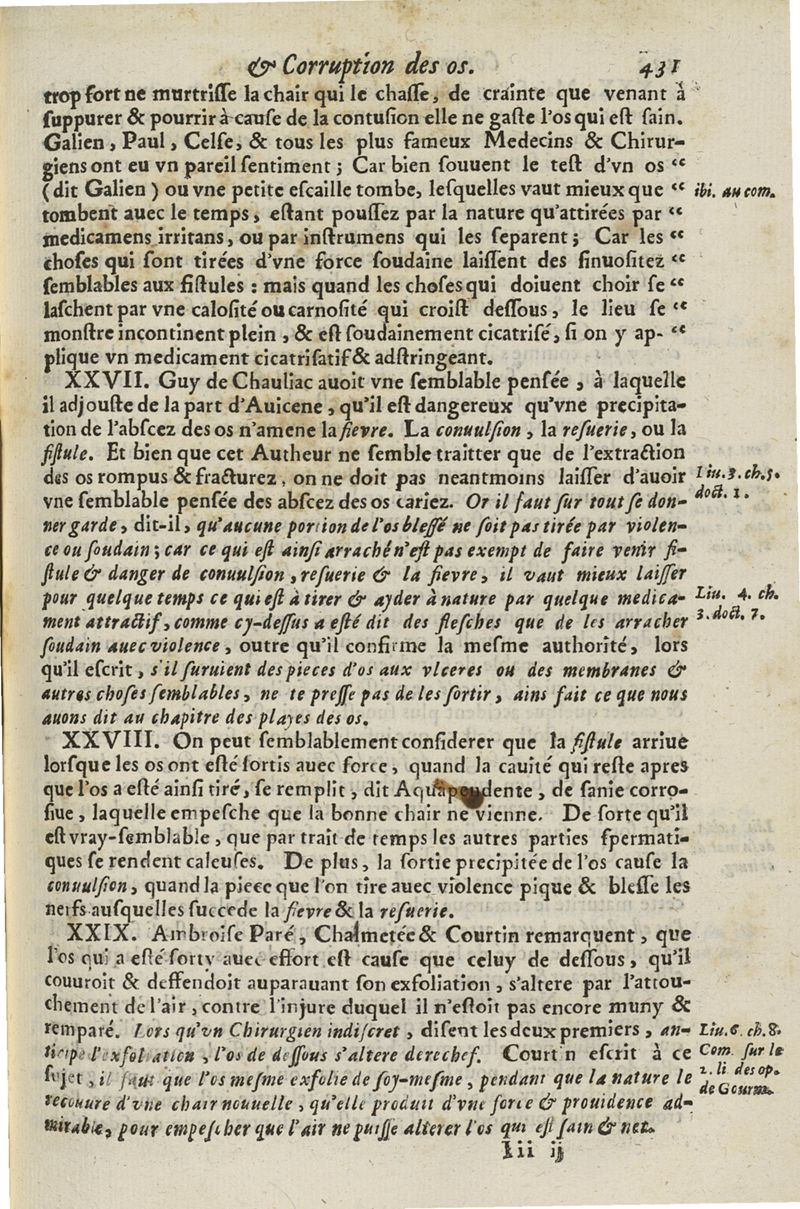 & Corruption des os. 431
trop fort ne murtrisse la chair qui le chasse, de crainte que venant à
suppurer & pourrir à cause de la contusion elle ne gaste l'os qui est sain.
Galien, Paul, Celse, & tous les plus fameux Medecins & Chirur-
giens ont eu vn pareil sentiment ; Car bien souuent le test d'vn os “
(dit Galien) ou vne petite escaille tombe, lesquelles vaut mieux que “ ibi. au com.
tombent auec le temps, estant poussez par la nature qu'attirées par “
medicamens irritans, ou par instrumens qui les separent ; Car les “
choses qui sont tirées d'vne force soudaine laissent des sinuositez “
semblables aux fistules : mais quand les choses qui doiuent choir se “
laschent par vne calosité ou carnosité qui croist dessous, le lieu se “
monstre incontinent plein, & est soudainement cicatrisé, si on y ap- “
plique vn medicament cicatrisatif & adstringeant.
XXVII. Guy de Chauliac auoit vne semblable pensée, à laquelle
il adjouste de la part d'Auicene, qu'il est dangereux qu'vne precipita-
tion de l'abscez des os n'amene la fievre. La conuulsion, la resuerie, ou la
fistule. Et bien que cet Autheur ne semble traitter que de l'extraction
des os rompus & fracturez, on ne doit pas neantmoins laisser d'auoir Liu. 3. ch. 5.
vne semblable pensée des abscez des os cariez. Or il faut sur tout se don- doct. 1.
ner garde, dit-il, qu'aucune portion de l'os blessé ne soit pas tirée par violen-
ce ou soudain ; car ce qui est ainsi arraché n'est pas exempt de faire venir fi-
stule & danger de conuulsion, resuerie & la fievre, il vaut mieux laisser
pour quelque temps ce qui est à tirer & ayder à nature par quelque medica- Liu. 4. ch.
ment attractif, comme cy-dessus a esté dit des flesches que de les arracher 3. doct. 7.
soudain auec violence, outre qu'il confirme la mesme authorité, lors
qu'il escrit, s'il suruient des pieces d'os aux vlceres ou des membranes &
autres choses semblables, ne te presse pas de les sortir, ains fait ce que nous
auons dit au chapitre des playes des os.
XXVIII. On peut semblablement considerer que la fistule arriue
lorsque les os ont esté sortis auec force, quand la cauité qui reste apres
que l'os a esté ainsi tiré, se remplit, dit Aquapendente, de sanie corro-
siue, laquelle empesche que la bonne chair ne vienne. De sorte qu'il
est vray-semblable, que par trait de temps les autres parties spermati-
ques se rendent caleuses. De plus, la sortie precipitée de l'os cause la
conuulsion, quand la piece que l'on tire auec violence pique & blesse les
nerfs ausquelles succede la fievre & la resuerie.
XXIX. Ambroise Paré, Chalmetée & Courtin remarquent, que
l'os qui a esté sorty auec effort est cause que celuy de dessous, qu'il
couuroit & deffendoit auparauant son exfoliation, s'altere par l'attou-
chement de l'air, contre l'injure duquel il n'estoit pas encore muny &
remparé. Lors qu'vn Chirurgien indiscret, disent les deux premiers, an- Liu. 6. ch. 8.
ticipe l'exfoliation, l'os de dessous s'altere derechef. Courtin escrit à ce Com. sur le
sujet, il faut que l'os mesme exfolie de soy-mesme, pendant que la nature le 2. li des op.
recouure d'vne chair nouuelle, qu'elle produit d'vne force & prouidence ad- de Gourm.
mirable, pour empescher que l'air ne puisse alterer l'os qui est sain & net.
Iii ij